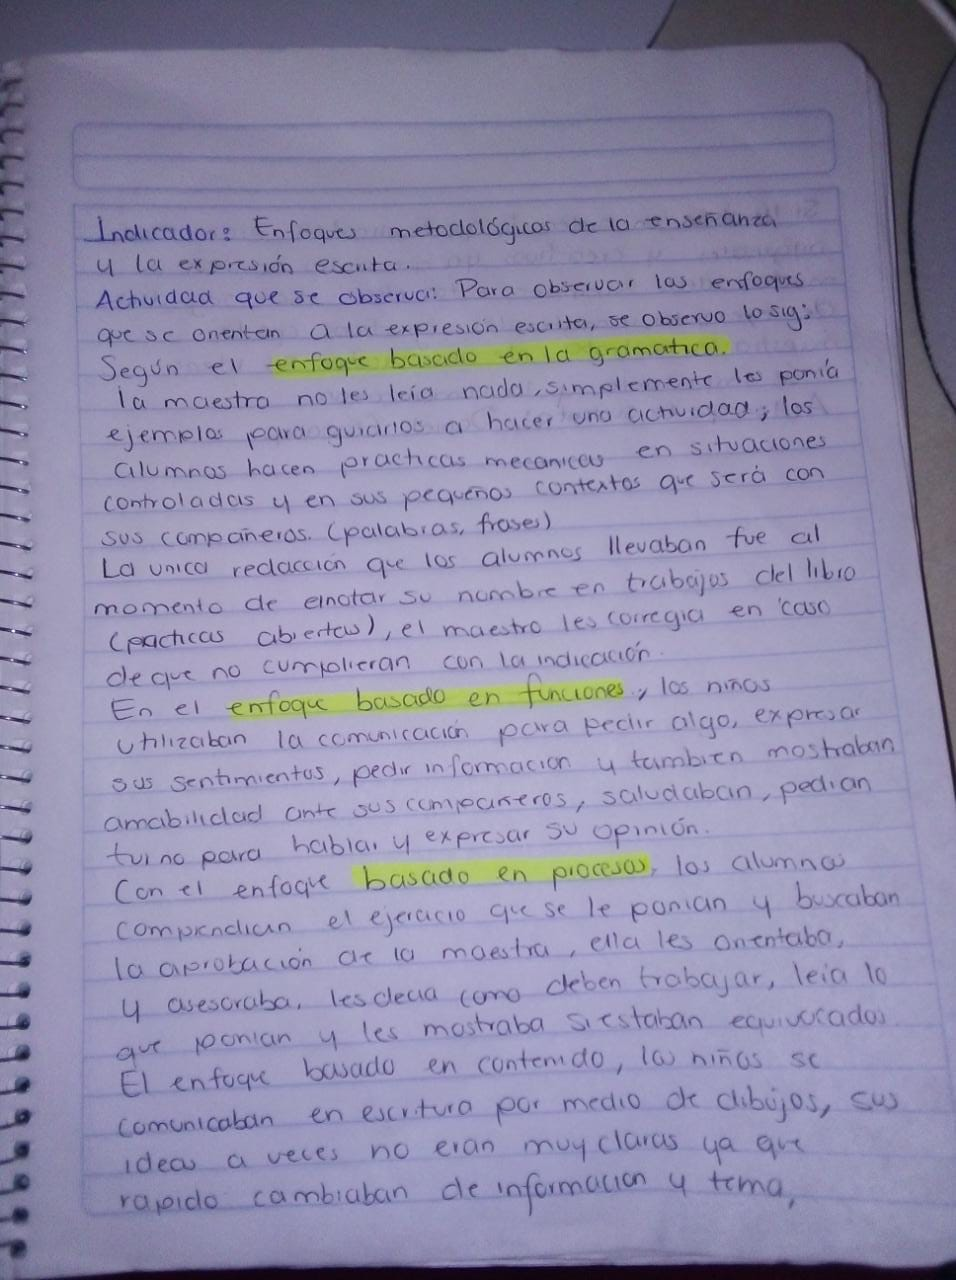 Indicador: Enfoques metodológicos de la enseñanza
y la expresión escrita.
Actividad que se observa: Para observar los enfoques
que se orientan a la expresión escrita, se observo lo sig:
Según el enfoque basado en la gramatica.
la maestra no les leía nada, simplemente les ponía
ejemplos para guiarlos a hacer una actividad; los
alumnos hacen practicas mecanicas en situaciones
controladas y en sus pequeños contextos que será con
sus compañeros. (palabras, frases)
La unica redacción que los alumnos llevaban fue al
momento de anotar su nombre en trabajos del libro
(practicas abiertas), el maestro les corregia en caso
de que no cumplieran con la indicación.
En el enfoque basado en funciones, los niños
utilizaban la comunicación para pedir algo, expresar
sus sentimientos, pedir informacion y tambien mostraban
amabilidad ante sus compañeros, saludaban, pedian
turno para hablar y expresar su opinión.
Con el enfoque basado en procesos, los alumnos
comprendian el ejercicio que se le ponian y buscaban
la aprobación de la maestra, ella les orientaba,
y asesoraba, les decia como deben trabajar, leia lo
que ponian y les mostraba si estaban equivocados
El enfoque basado en contenido, los niños se
comunicaban en escritura por medio de dibujos, sus
ideas a veces no eran muy claras ya que
rapido cambiaban de informacion y tema,